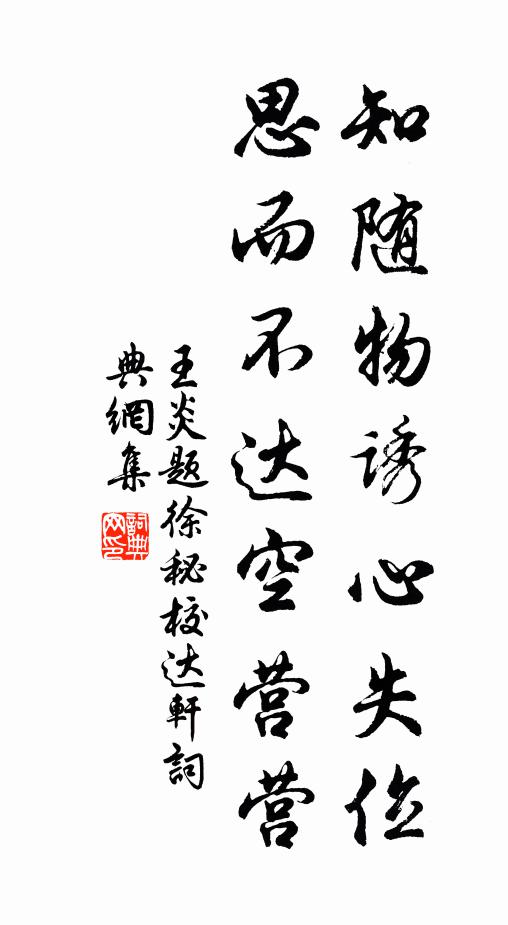 知随物诱心失俭
思而不达空营营
王炎题徐秘校达軒詞
典網集
詞典
网印